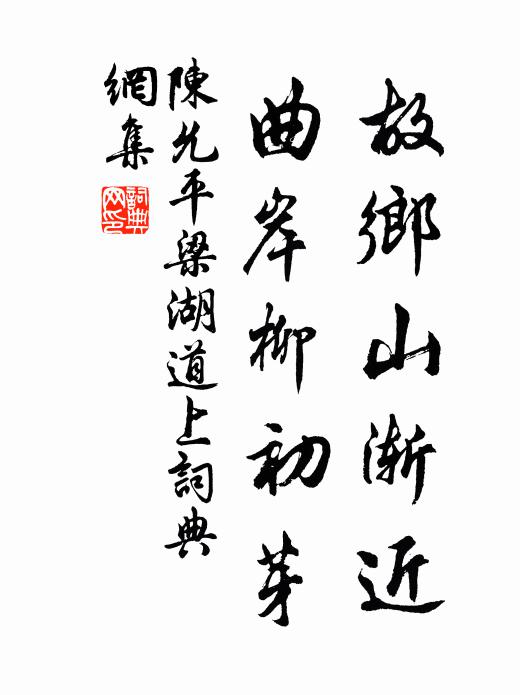 故鄉山漸近
曲岸柳初芽
陳允平梁湖道上詞典
網集
詞典网印